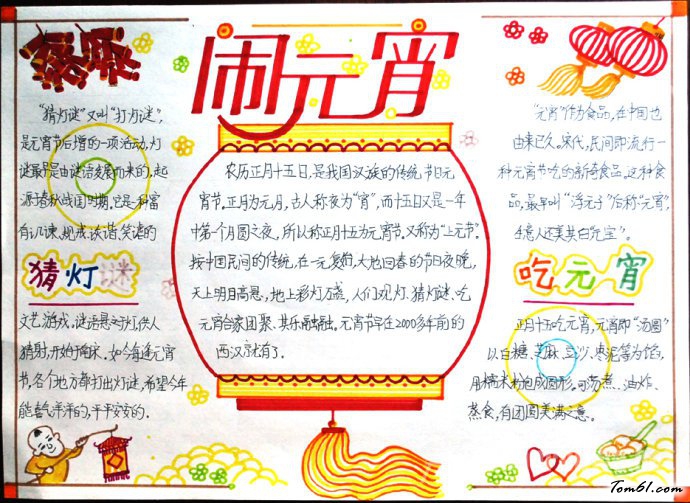 闹元宵
"猜灯谜"又叫"打灯谜",
是元宵节后增的一项活动,灯
谜最早是由谜语发展而来的,起
源于春秋战国时期。它是一种富
有讥谏、规戒、诙谐、笑谑的
猜灯谜
文艺游戏。谜语悬之于灯,供人
猜射,开始于南宋。如今每逢元宵
节,各个地方都打出灯谜,希望今年
能喜气洋洋的,平平安安的.
农历正月十五日,是我国汉族的传统节日元
宵节。正月为元月,古人称夜为"宵",而十五日又是一年
中第一个月圆之夜,所以称正月十五为元宵节。又称为"上元节"。
按中国民间的传统,在一元复始,大地回春的节日夜晚,
天上明月高悬,地上彩灯万盏,人们观灯、猜灯谜、吃
元宵合家团聚、其乐融融。元宵节早在2000多年前的
西汉就有了.
"元宵"作为食品,在中国也
由来已久。宋代,民间即流行一
种元宵节吃的新奇食品。这种食
品,最早叫"浮元子"后称"元宵",
吃元宵
正月十五吃元宵,元宵即"汤圆"
以白糖、芝麻、豆沙、枣泥等为馅,
用糯米粉包成圆形,可荡煮、油炸、
蒸食,有团圆美满之意.
Tom61.com